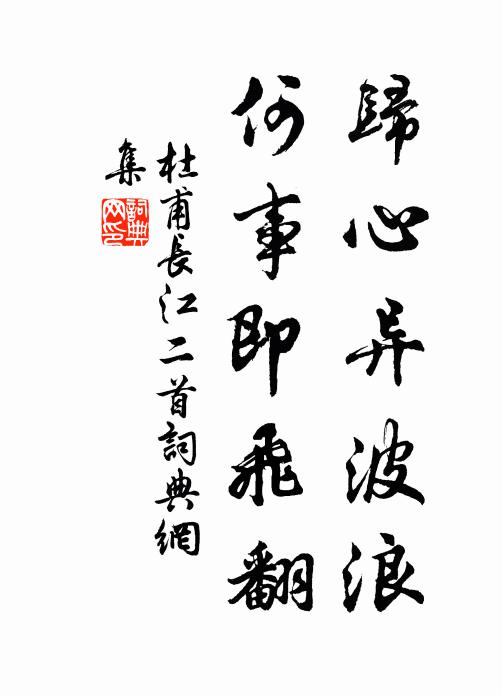 歸心异波浪
何事即飛翻
杜甫長江二首詞典網
集
詞典网印